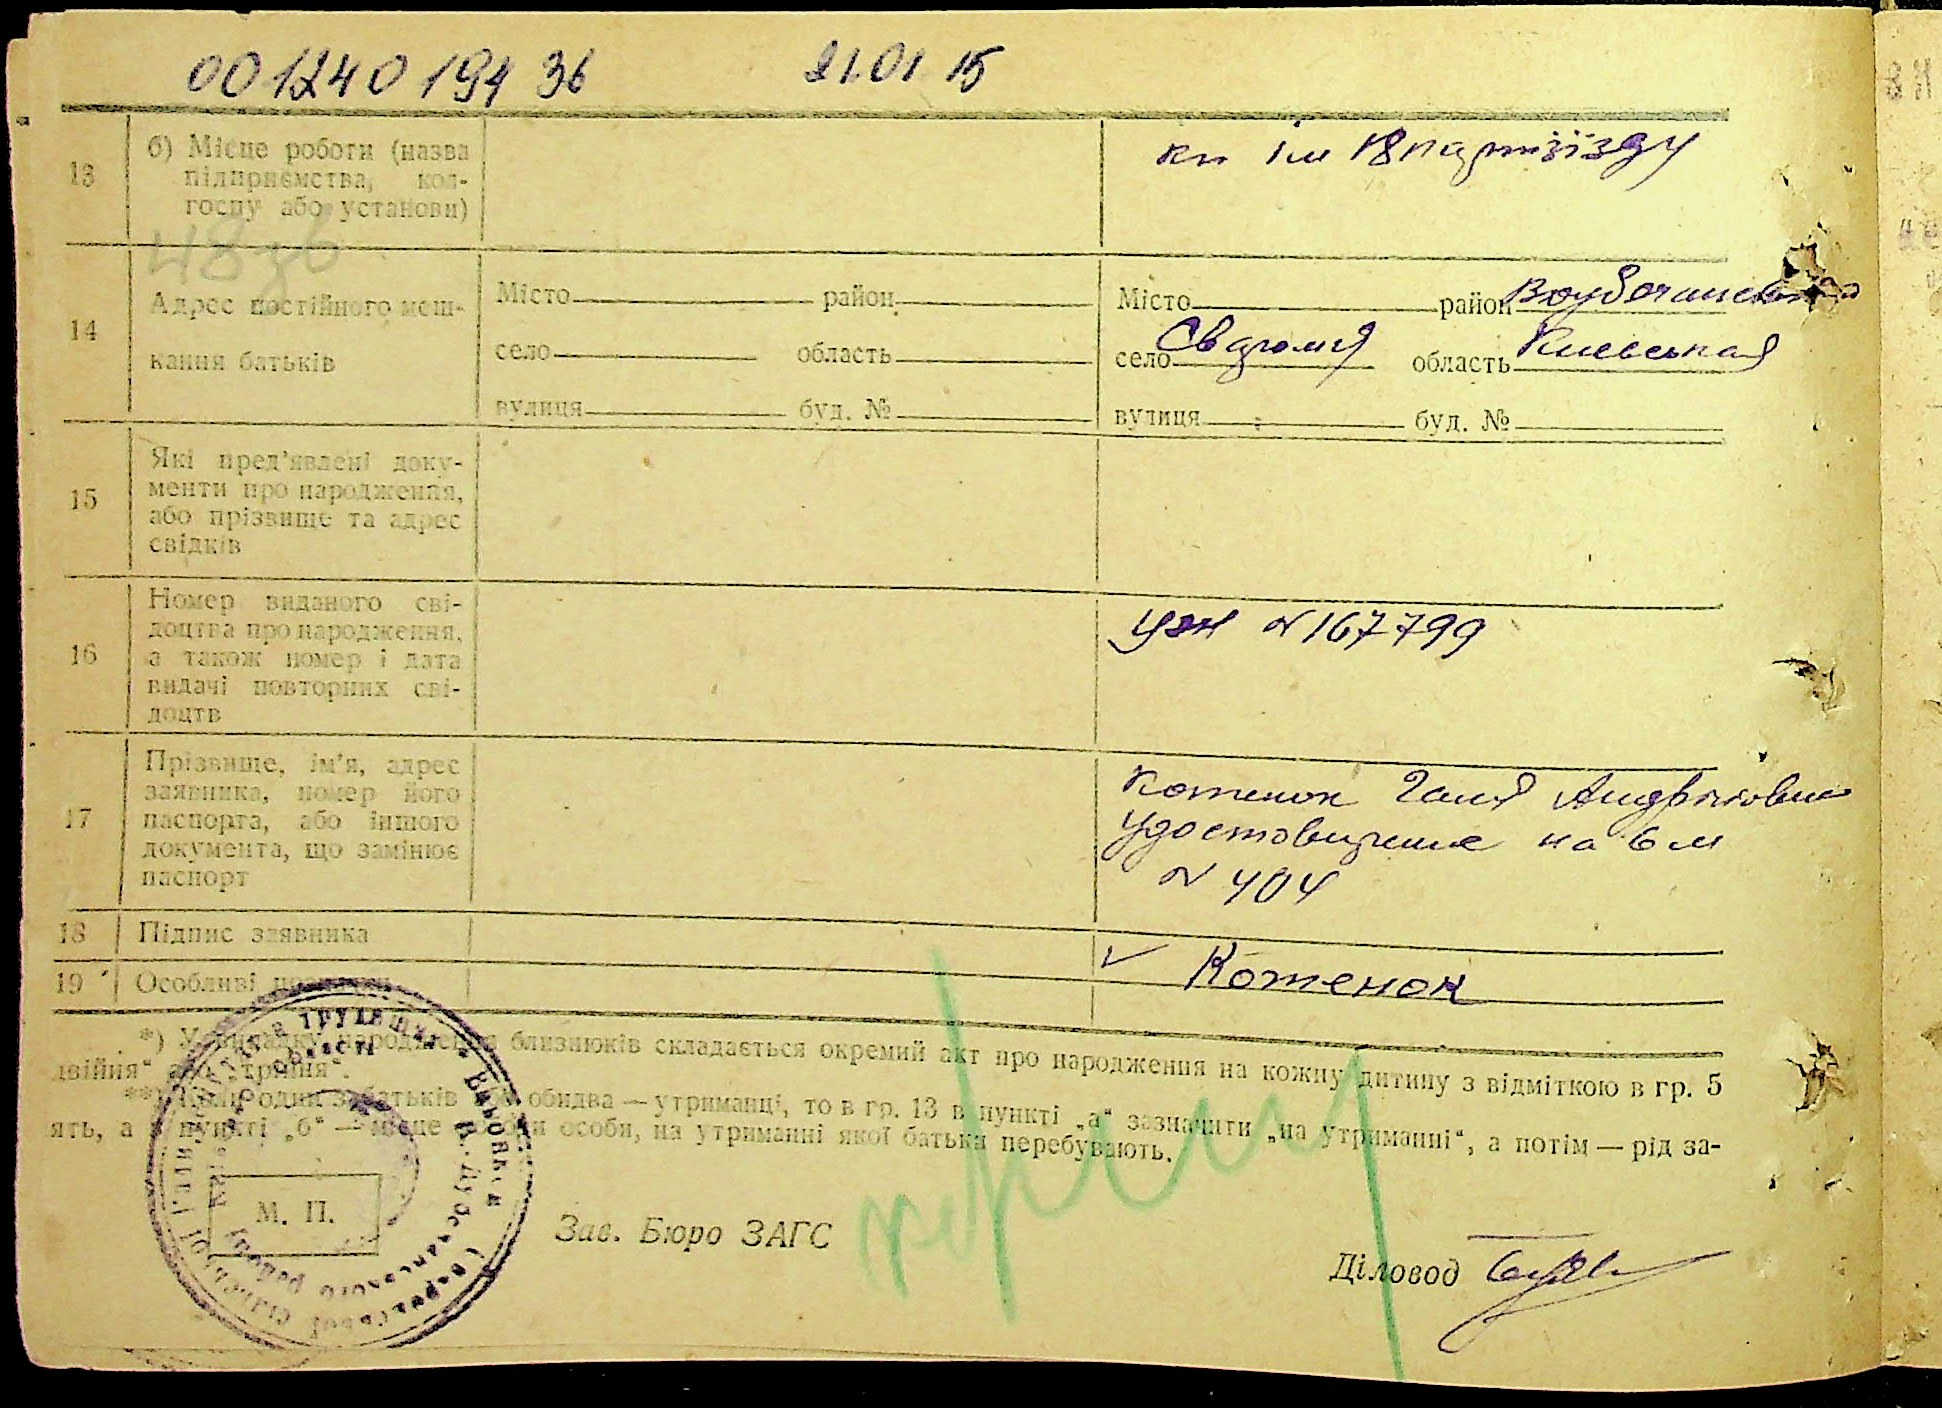 00124019436 21.01 15
13 б) Місце роботи (назва підприємства, кол-
госпу або установи)
кп ім 18 партзїзду
48зв
14 Адрес постійного меш-
кання батьків
Місто район
село область
вулиця буд. №
Місто район
село Сваромя область Киевськая
вулиця буд. №
15 Які пред'явлені доку-
менти про народження,
або прізвище та адрес
свідків
16 Номер виданого сві-
доцтва про народження,
а також номер і дата
видачі повторних сві-
доцтв
УЗН № 167799
17 Прізвище, ім'я, адрес
заявника, номер його
паспорта, або іншого
документа, що замінює
паспорт
Котенок Галя Андріївна
удостовирение на 6 м
№ 404
18 Підпис заявника
Котенок
19 Особливі
*) У випадку народження близнюків складається окремий акт про народження на кожну дитину з відміткою в гр. 5
двійня“ або „трійня“.
**) Коли один з батьків або обидва — утриманці, то в гр. 13 в пункті „а“ зазначити „на утриманні“, а потім — рід за-
ять, а в пункті „б“ — місце роботи особи, на утриманні якої батьки перебувають.
М. П.
Зав. Бюро ЗАГС
Діловод